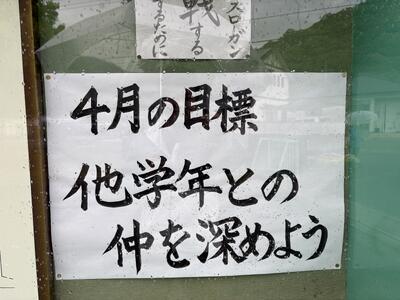 スローガン
戦する
するために
4月の目標
他学年との
仲を深めよう